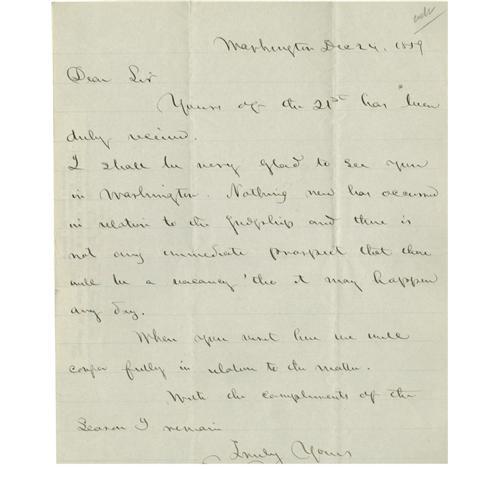 Washington Dec 24, 1889
Dear Sir
Yours of the 21st has been
duly received.
I shall be very glad to see you
in Washington. Nothing new has occurred
in relation to the Judgship and there is
not any immediate prospect that there
will be a vacancy 'tho it may happen
any day.
When you visit here we will
confer fully in relation to the matter.
With the compliments of the
Season I remain
Truly Yours